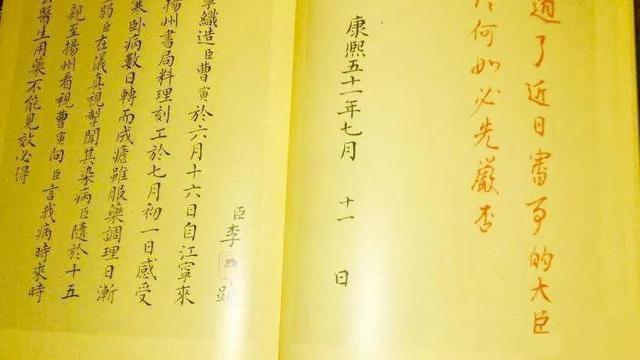 過了近日審事的大臣
何如必先嚴否
康熙五十一年七月 十一 日
臣李 跪
織造臣曹寅於六月十六日自江寧來
揚州書局料理刻工於七月初一日感受
寒臥病數日轉而成瘧雖服藥調理日漸
弱臣在儀真視掣聞其染病臣隨於十五
親至揚州看視曹寅向臣言我病時來時
醫生用藥不能見效必得